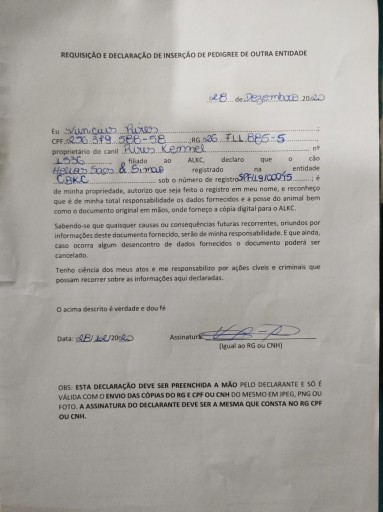 REQUISIÇÃO E DECLARAÇÃO DE INSERÇÃO DE PEDIGREE DE OUTRA ENTIDADE
28 de Dezembro 2020
Eu Vinicius Pires
CPF 236.379.588-58 RG 26 588-5
proprietário do canil Pires Kennel nº
1536 filiado ao ALKC, declaro que o cão
& Simão registrado na entidade
CBKC sob o número de registro SPF/19/00045 ; é
de minha propriedade, autorizo que seja feito o registro em meu nome, e reconheço
que é de minha total responsabilidade os dados fornecidos e a posse do animal bem
como o documento original em mãos, onde forneço a cópia digital para o ALKC.
Sabendo-se que quaisquer causas ou consequências futuras recorrentes, oriundos por
informações deste documento fornecido, serão de minha responsabilidade. E que ainda,
caso ocorra algum desencontro de dados fornecidos o documento poderá ser
cancelado.
Tenho ciência dos meus atos e me responsabilizo por ações cíveis e criminais que
possam recorrer sobre as informações aqui declaradas.
O acima descrito é verdade e dou fé
Data: 28/12/2020 Assinatura:
(Igual ao RG ou CNH)
OBS: ESTA DECLARAÇÃO DEVE SER PREENCHIDA A MÃO PELO DECLARANTE E SÓ É
VÁLIDA COM O ENVIO DAS CÓPIAS DO RG E CPF OU CNH DO MESMO EM JPEG, PNG OU
FOTO. A ASSINATURA DO DECLARANTE DEVE SER A MESMA QUE CONSTA NO RG CPF
OU CNH.